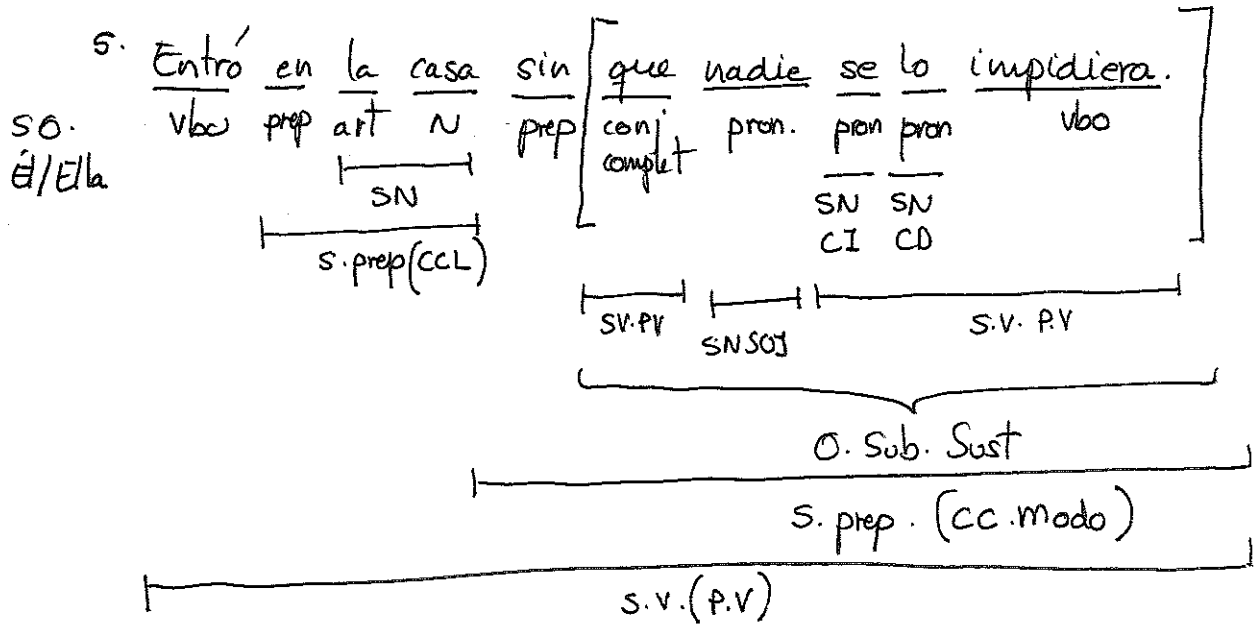 5. Entró en la casa sin que nadie se lo impidiera.
SO. vbo prep art N prep conj pron. pron pron vbo
Él/Ella complet
SN SN SN
CI CD
S.prep(CCL)
SV.PV SNSOJ S.V. P.V
O. Sub. Sust
S. prep. (CC.modo)
S.V.(P.V)